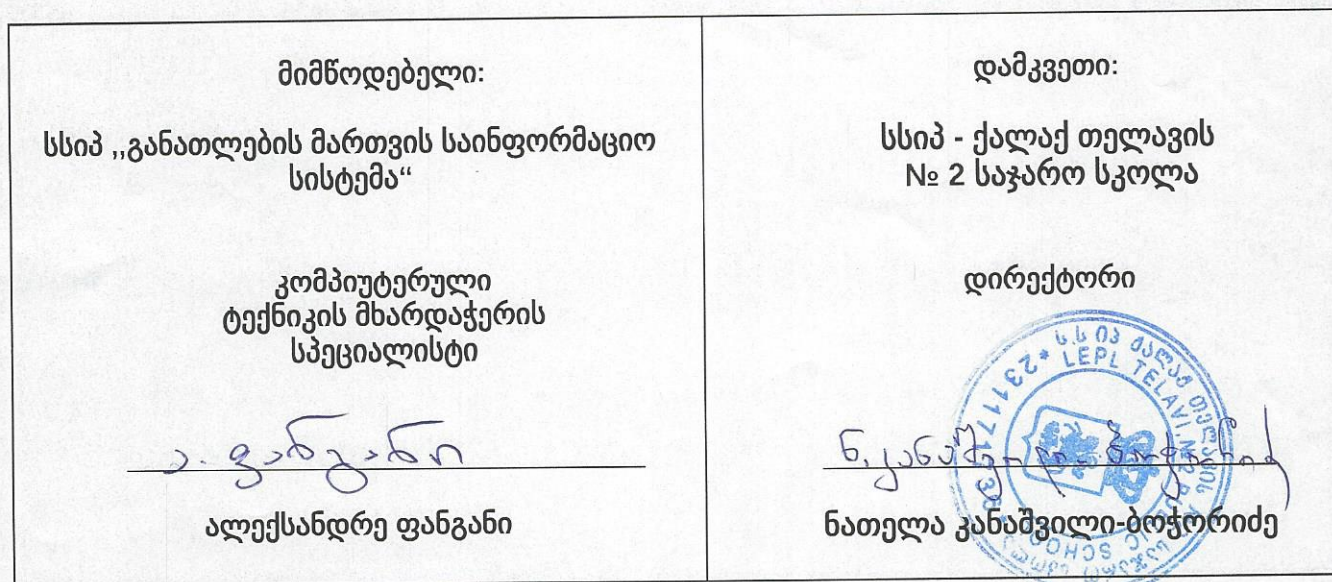 მიმწოდებელი:
სსიპ ,,განათლების მართვის საინფორმაციო
სისტემა“
კომპიუტერული
ტექნიკის მხარდაჭერის
სპეციალისტი
ა. ფანგანი
ალექსანდრე ფანგანი
დამკვეთი:
სსიპ - ქალაქ თელავის
№ 2 საჯარო სკოლა
დირექტორი
ნათელა კანაშვილი-ბოჭორიძე
LEPL TELAVI №2 PUBLIC SCHOOL